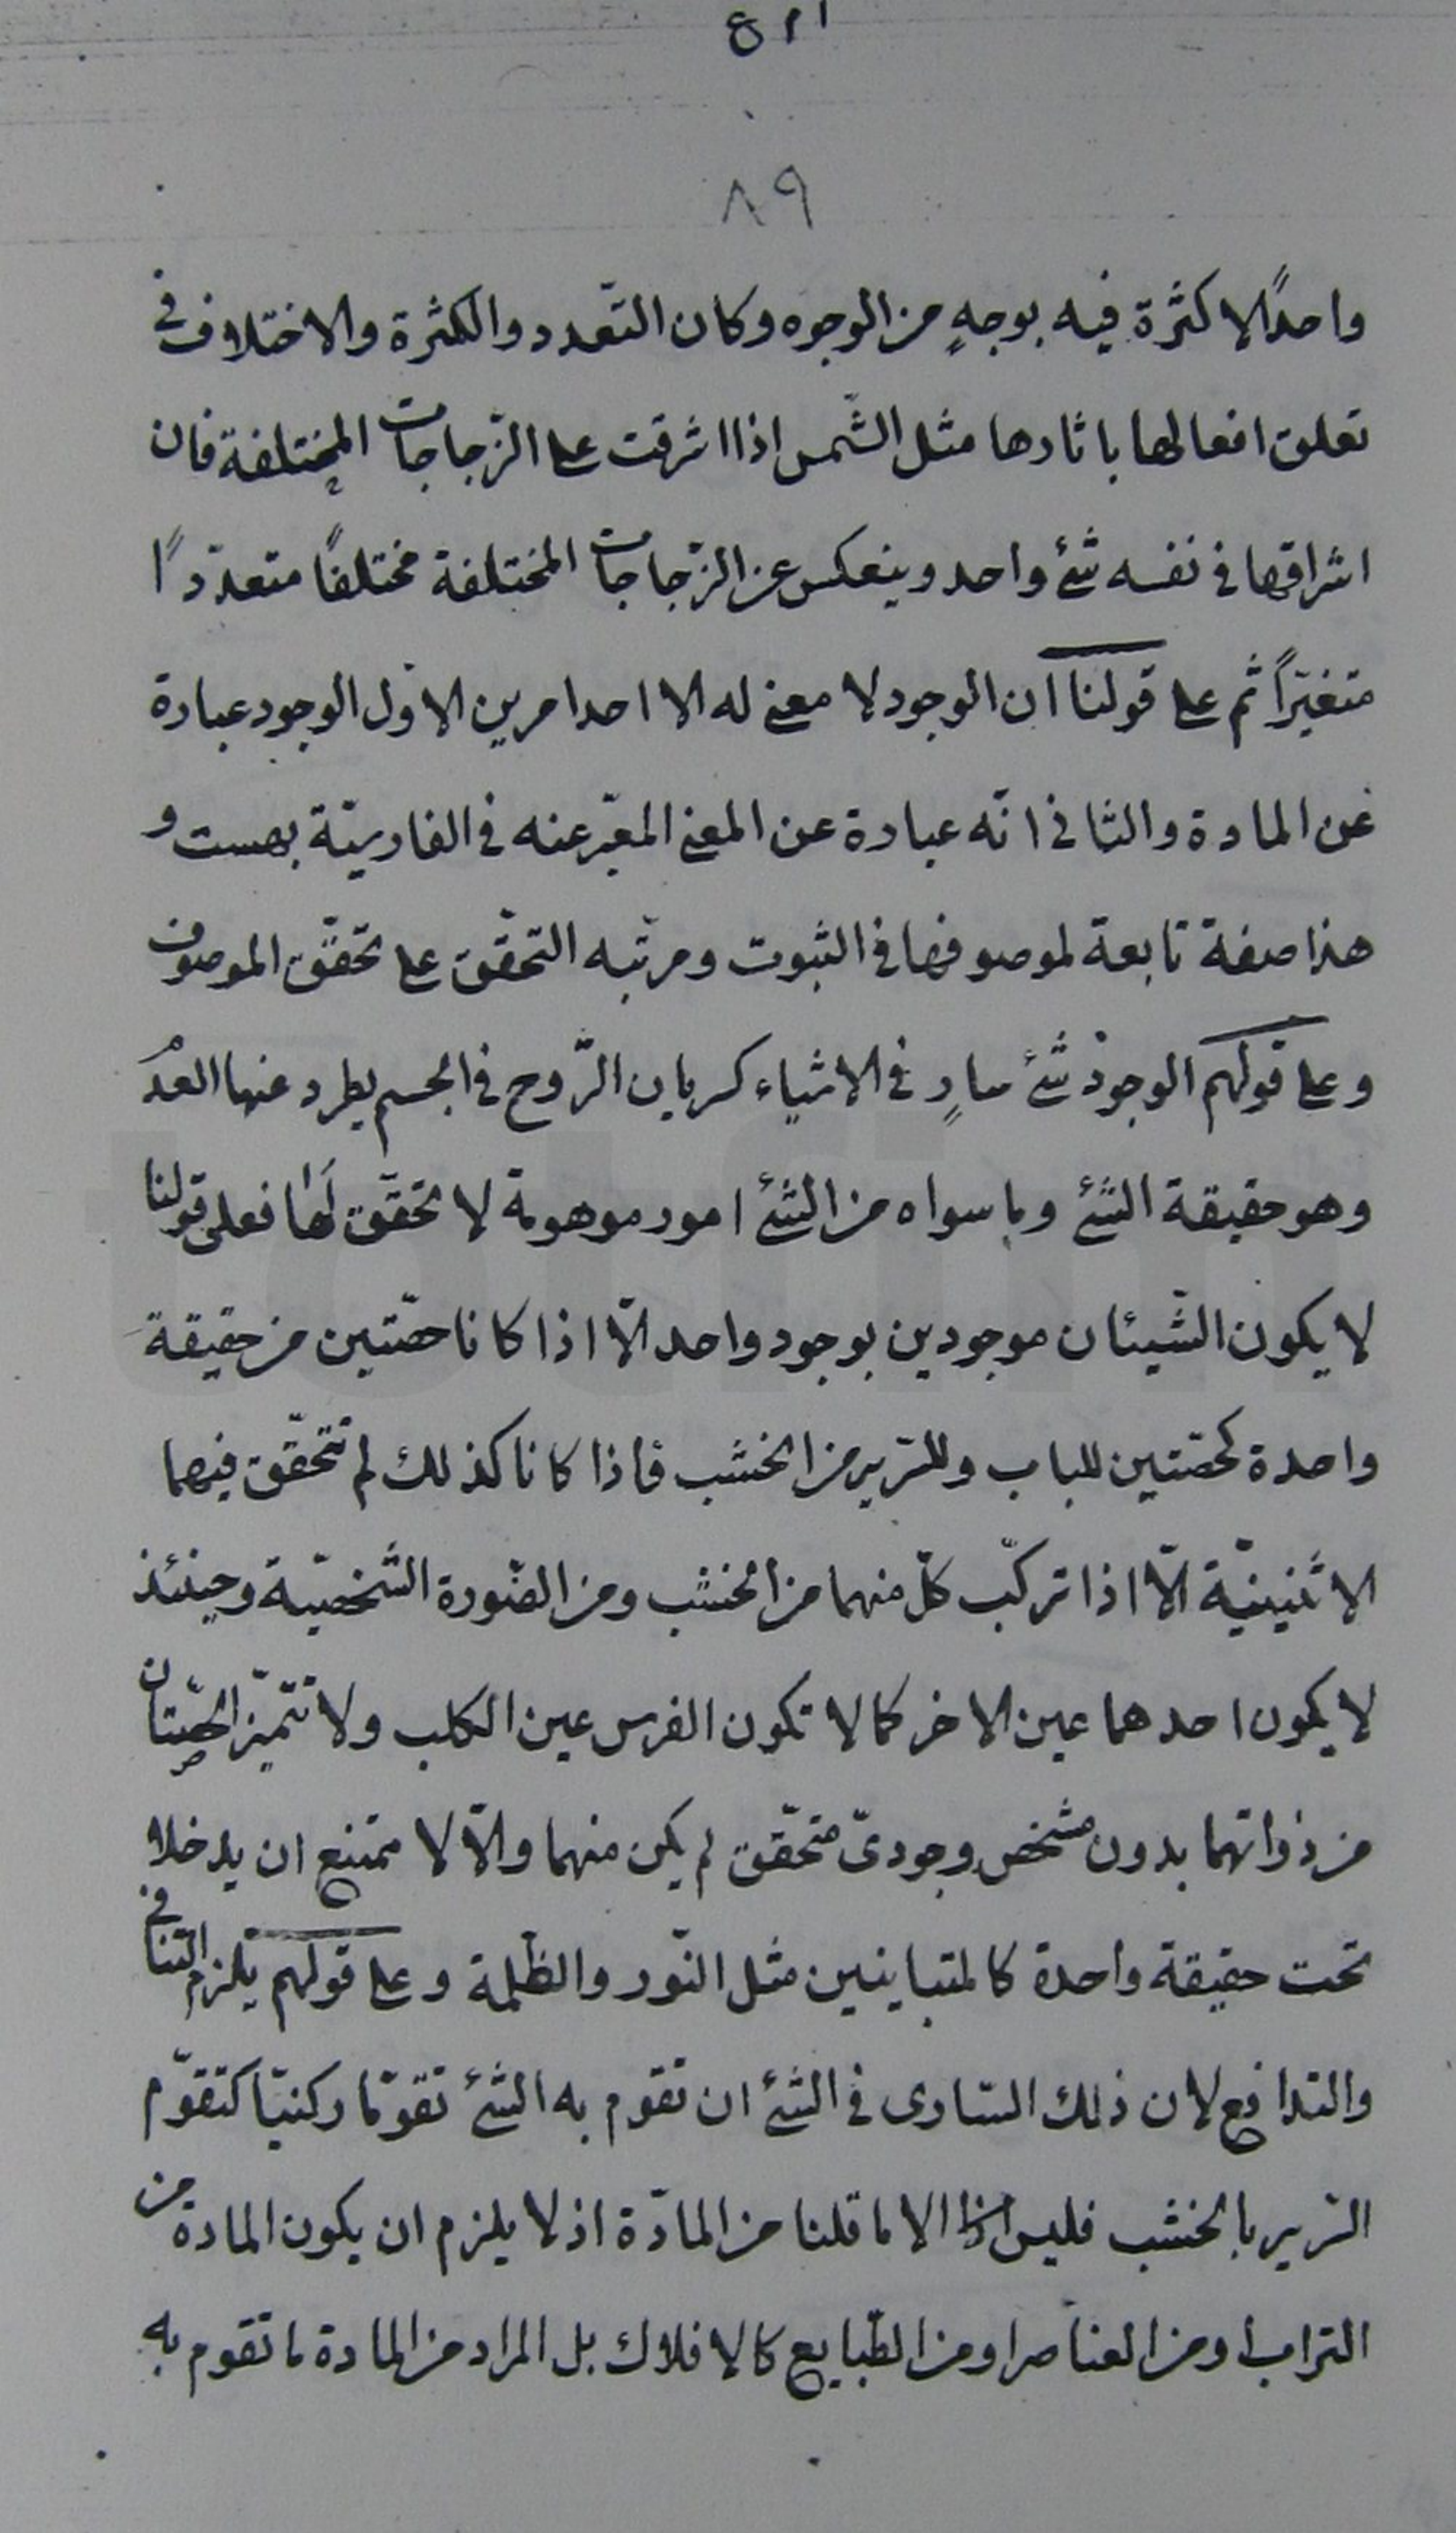 ٨٩
واحدًا لا كثرة فيه بوجهٍ من الوجوه وكان التّعدد والكثرة والاختلاف فى
تعلق افعالها باثارها مثل الشّمس اذا اشرقت على الزّجاجات المختلفة فان
اشراقها فى نفسه شئ واحد وينعكس عن الزّجاجات المختلفة مختلفًا متعدّدًا
متغيّرًا ثم على قولنا ان الوجود لا معنى له الا احد امرين الاوّل الوجود عبارة
عن المادة والثانى انّه عبارة عن المعنى المعبّر عنه فى الفارسيّة بهست و
هذا صفة تابعة لموصوفها فى الثبوت ومرتبه التحقّق على تحقّق الموصوف
وعلى قولهم الوجود شئ سارٍ فى الاشياء كسريان الرّوح فى الجسم يطرد عنها العدم
وهو حقيقة الشئ وما سواه من الشئ امور موهومة لا تحقّق لها فعلى قولنا
لا يكون الشّيئان موجودين بوجود واحد الّا اذا كانا حصّتين من حقيقة
واحدة كحصّتين للباب وللسّرير من الخشب فاذا كانا كذلك لم تتحقّق فيهما
الاثنينيّة الّا اذا تركّب كلّ منهما من الخشب ومن الصّورة الشّخصيّة وحينئذ
لا يكون احدهما عين الاخر كما لا تكون الفرس عين الكلب ولا تتميّز الحصّتان
من ذواتهما بدون مشخص وجودىّ متحقّق لم يكن منهما والّا لامتنع ان يدخلا
تحت حقيقة واحدة كالمتباينين مثل النّور والظّلمة وعلى قولهم يلزم التنافى
والتدافع لان ذلك السّارى فى الشئ ان تقوم به الشئ تقوّمًا ركنيّا كتقوّم
السّرير بالخشب فليس اذا الا ما قلنا من المادّة اذ لا يلزم ان يكون المادة من
التراب او من العناصر او من الطّبايع كالافلاك بل المراد من المادة ما تقوم به